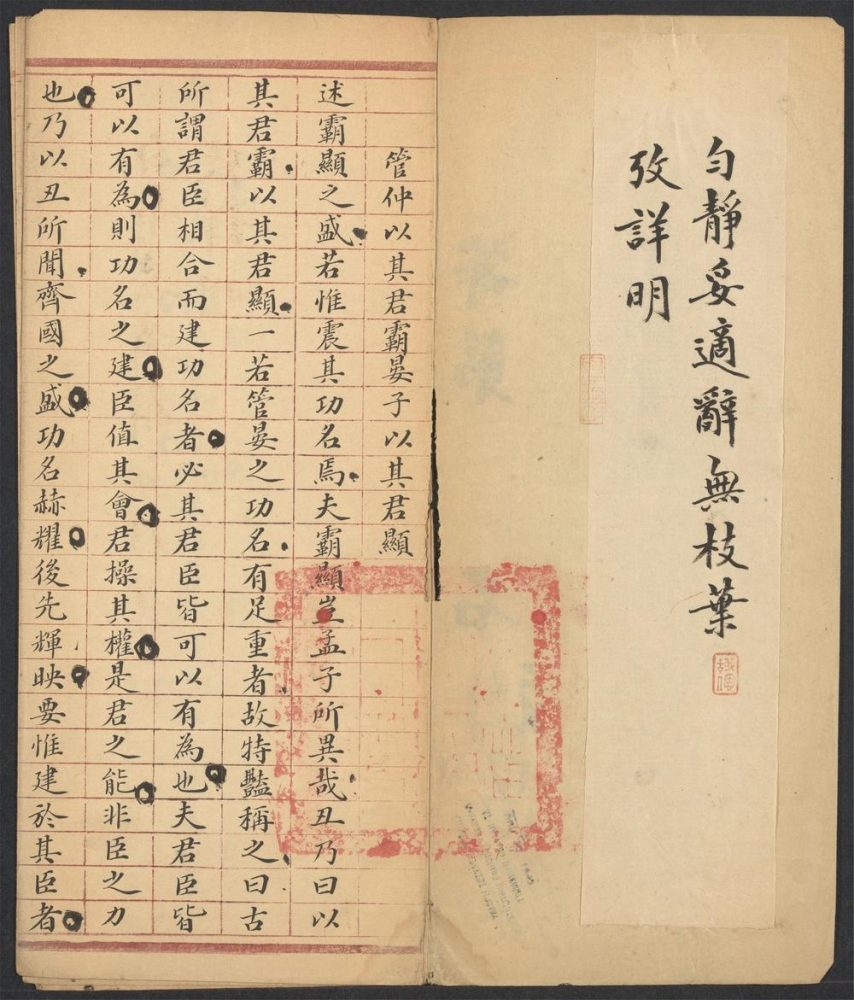 勻靜妥適辭無枝葉
攷詳明
管仲以其君霸晏子以其君顯
述霸顯之盛若惟震其功名焉夫霸顯豈孟子所異哉丑乃曰以
其君霸以其君顯一若管晏之功名有足重者故特豔稱之曰古
所謂君臣相合而建功名者必其君臣皆可以有為也夫君臣皆
可以有為則功名之建臣值其會君操其權是君之能非臣之力
也乃以丑所聞齊國之盛功名赫耀後先輝映要惟建於其臣者